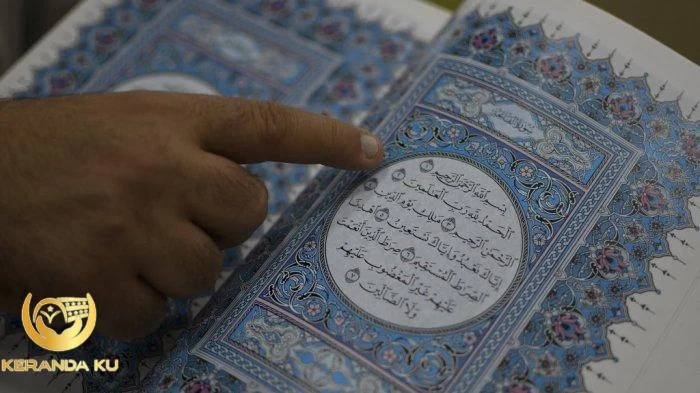 سُورَةُ الْفَاتِحَةِ
بِسْمِ اللَّهِ الرَّحْمَٰنِ الرَّحِيمِ ١
الْحَمْدُ لِلَّهِ رَبِّ الْعَالَمِينَ ٢
الرَّحْمَٰنِ الرَّحِيمِ ٣ مَالِكِ يَوْمِ الدِّينِ ٤
إِيَّاكَ نَعْبُدُ وَإِيَّاكَ نَسْتَعِينُ ٥ اهْدِنَا
الصِّرَاطَ الْمُسْتَقِيمَ ٦ صِرَاطَ الَّذِينَ أَنْعَمْتَ
عَلَيْهِمْ غَيْرِ الْمَغْضُوبِ عَلَيْهِمْ
وَلَا الضَّالِّينَ ٧
KERANDA KU